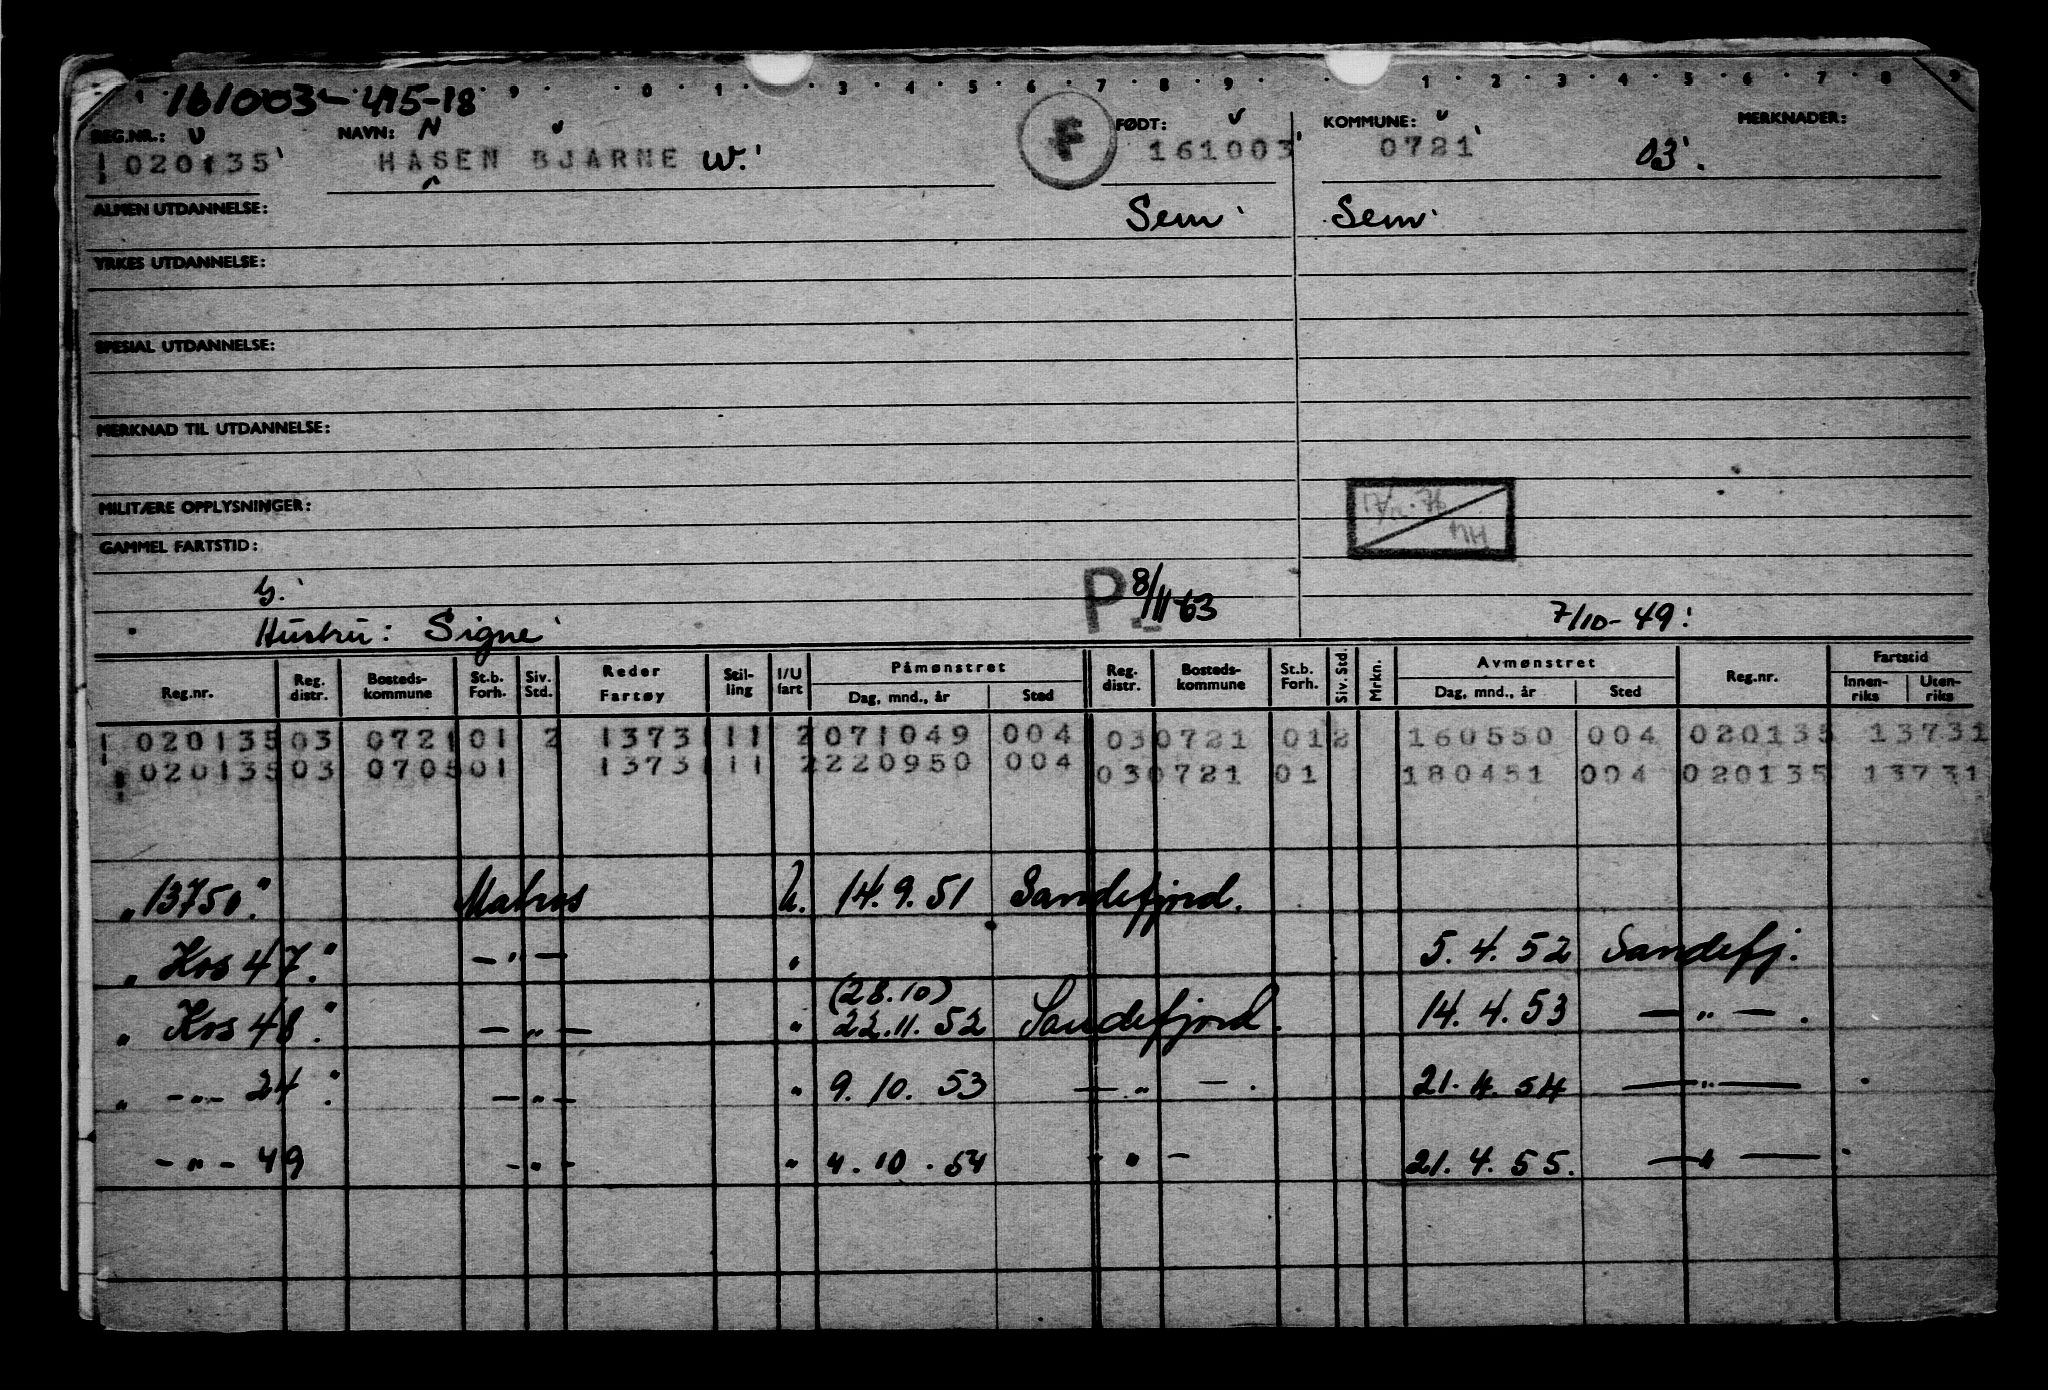 161003-415-18
REG.NR.: NAVN: N FØDT: KOMMUNE: MERKNADER:
020135 HASEN BJARNE W. F 161003 0721 03.
ALMEN UTDANNELSE: Sem Sem
YRKES UTDANNELSE:
SPESIAL UTDANNELSE:
MERKNAD TIL UTDANNELSE:
MILITÆRE OPPLYSNINGER:
GAMMEL FARTSTID:
P 8/11-63
Hustru: Signe 7/10-49
Reg.nr. Reg. distr. Bosteds-kommune St.b. Forh. Siv. Std. Reder Fartøy Stil-ling I/U fart Påmønstret Dag, mnd., år Sted Reg. distr. Bosteds-kommune St.b. Forh. Siv. Std. Mrkn. Avmønstret Dag, mnd., år Sted Reg.nr. Fartstid Innen-riks Uten-riks
020135 03 0721 01 2 1373 1 11 2 071049 004 03 0721 01 2 160550 004 020135 13731
020135 03 0705 01 1373 1 11 2 220950 004 03 0721 01 180451 004 020135 13731
„13750." Matros U. 14.9.51 Sandefjord.
„Kos 47." -"- " 5.4.52 Sandefj.
(28.10)
„Kos 48." -"- " 22.11.52 Sandefjord. 14.4.53 -"-.
„ -"- 24." -"- " 9.10.53 -"-. 21.4.54 -"-
-"- 49 -"- " 4.10.54 -"- 21.4.55. -"-